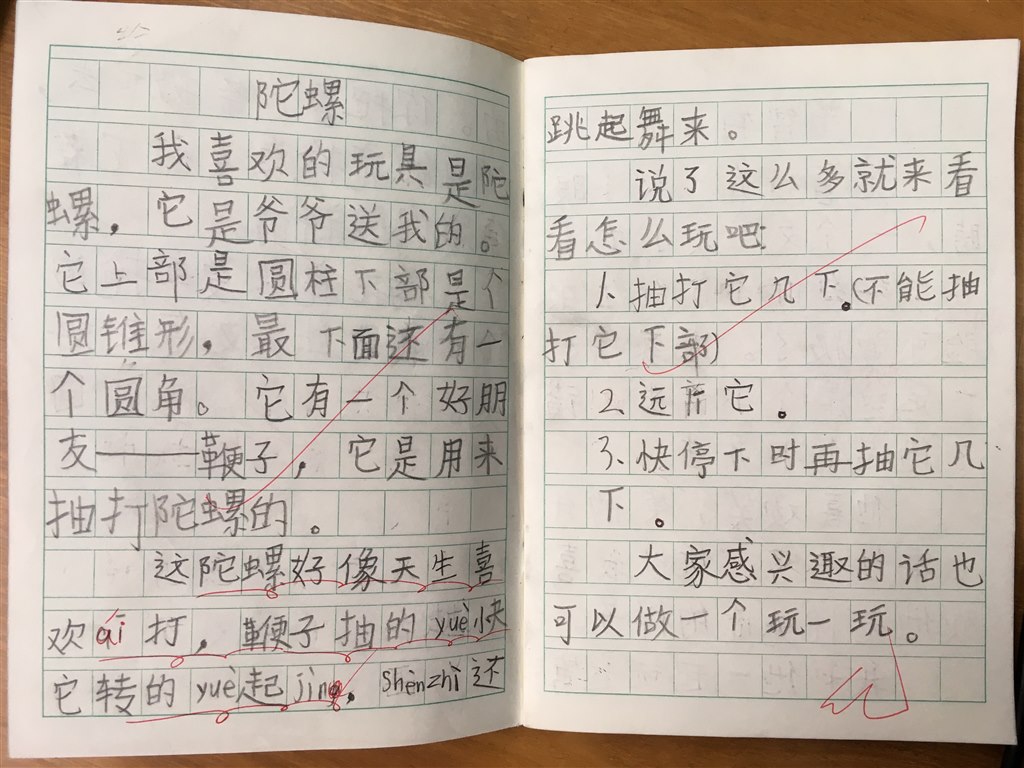 陀螺
我喜欢的玩具是陀
螺，它是爷爷送我的。
它上部是圆柱下部是个
圆锥形，最下面还有一
个圆角。它有一个好朋
友——鞭子，它是用来
抽打陀螺的。
这陀螺好像天生喜
欢ái打，鞭子抽的yuè快
它转的yuè起jìng，shènzhì还
跳起舞来。
说了这么多就来看
看怎么玩吧:
1、抽打它几下。(不能抽
打它下部)
2、远离它。
3、快停下时再抽它几
下。
大家感兴趣的话也
可以做一个玩一玩。